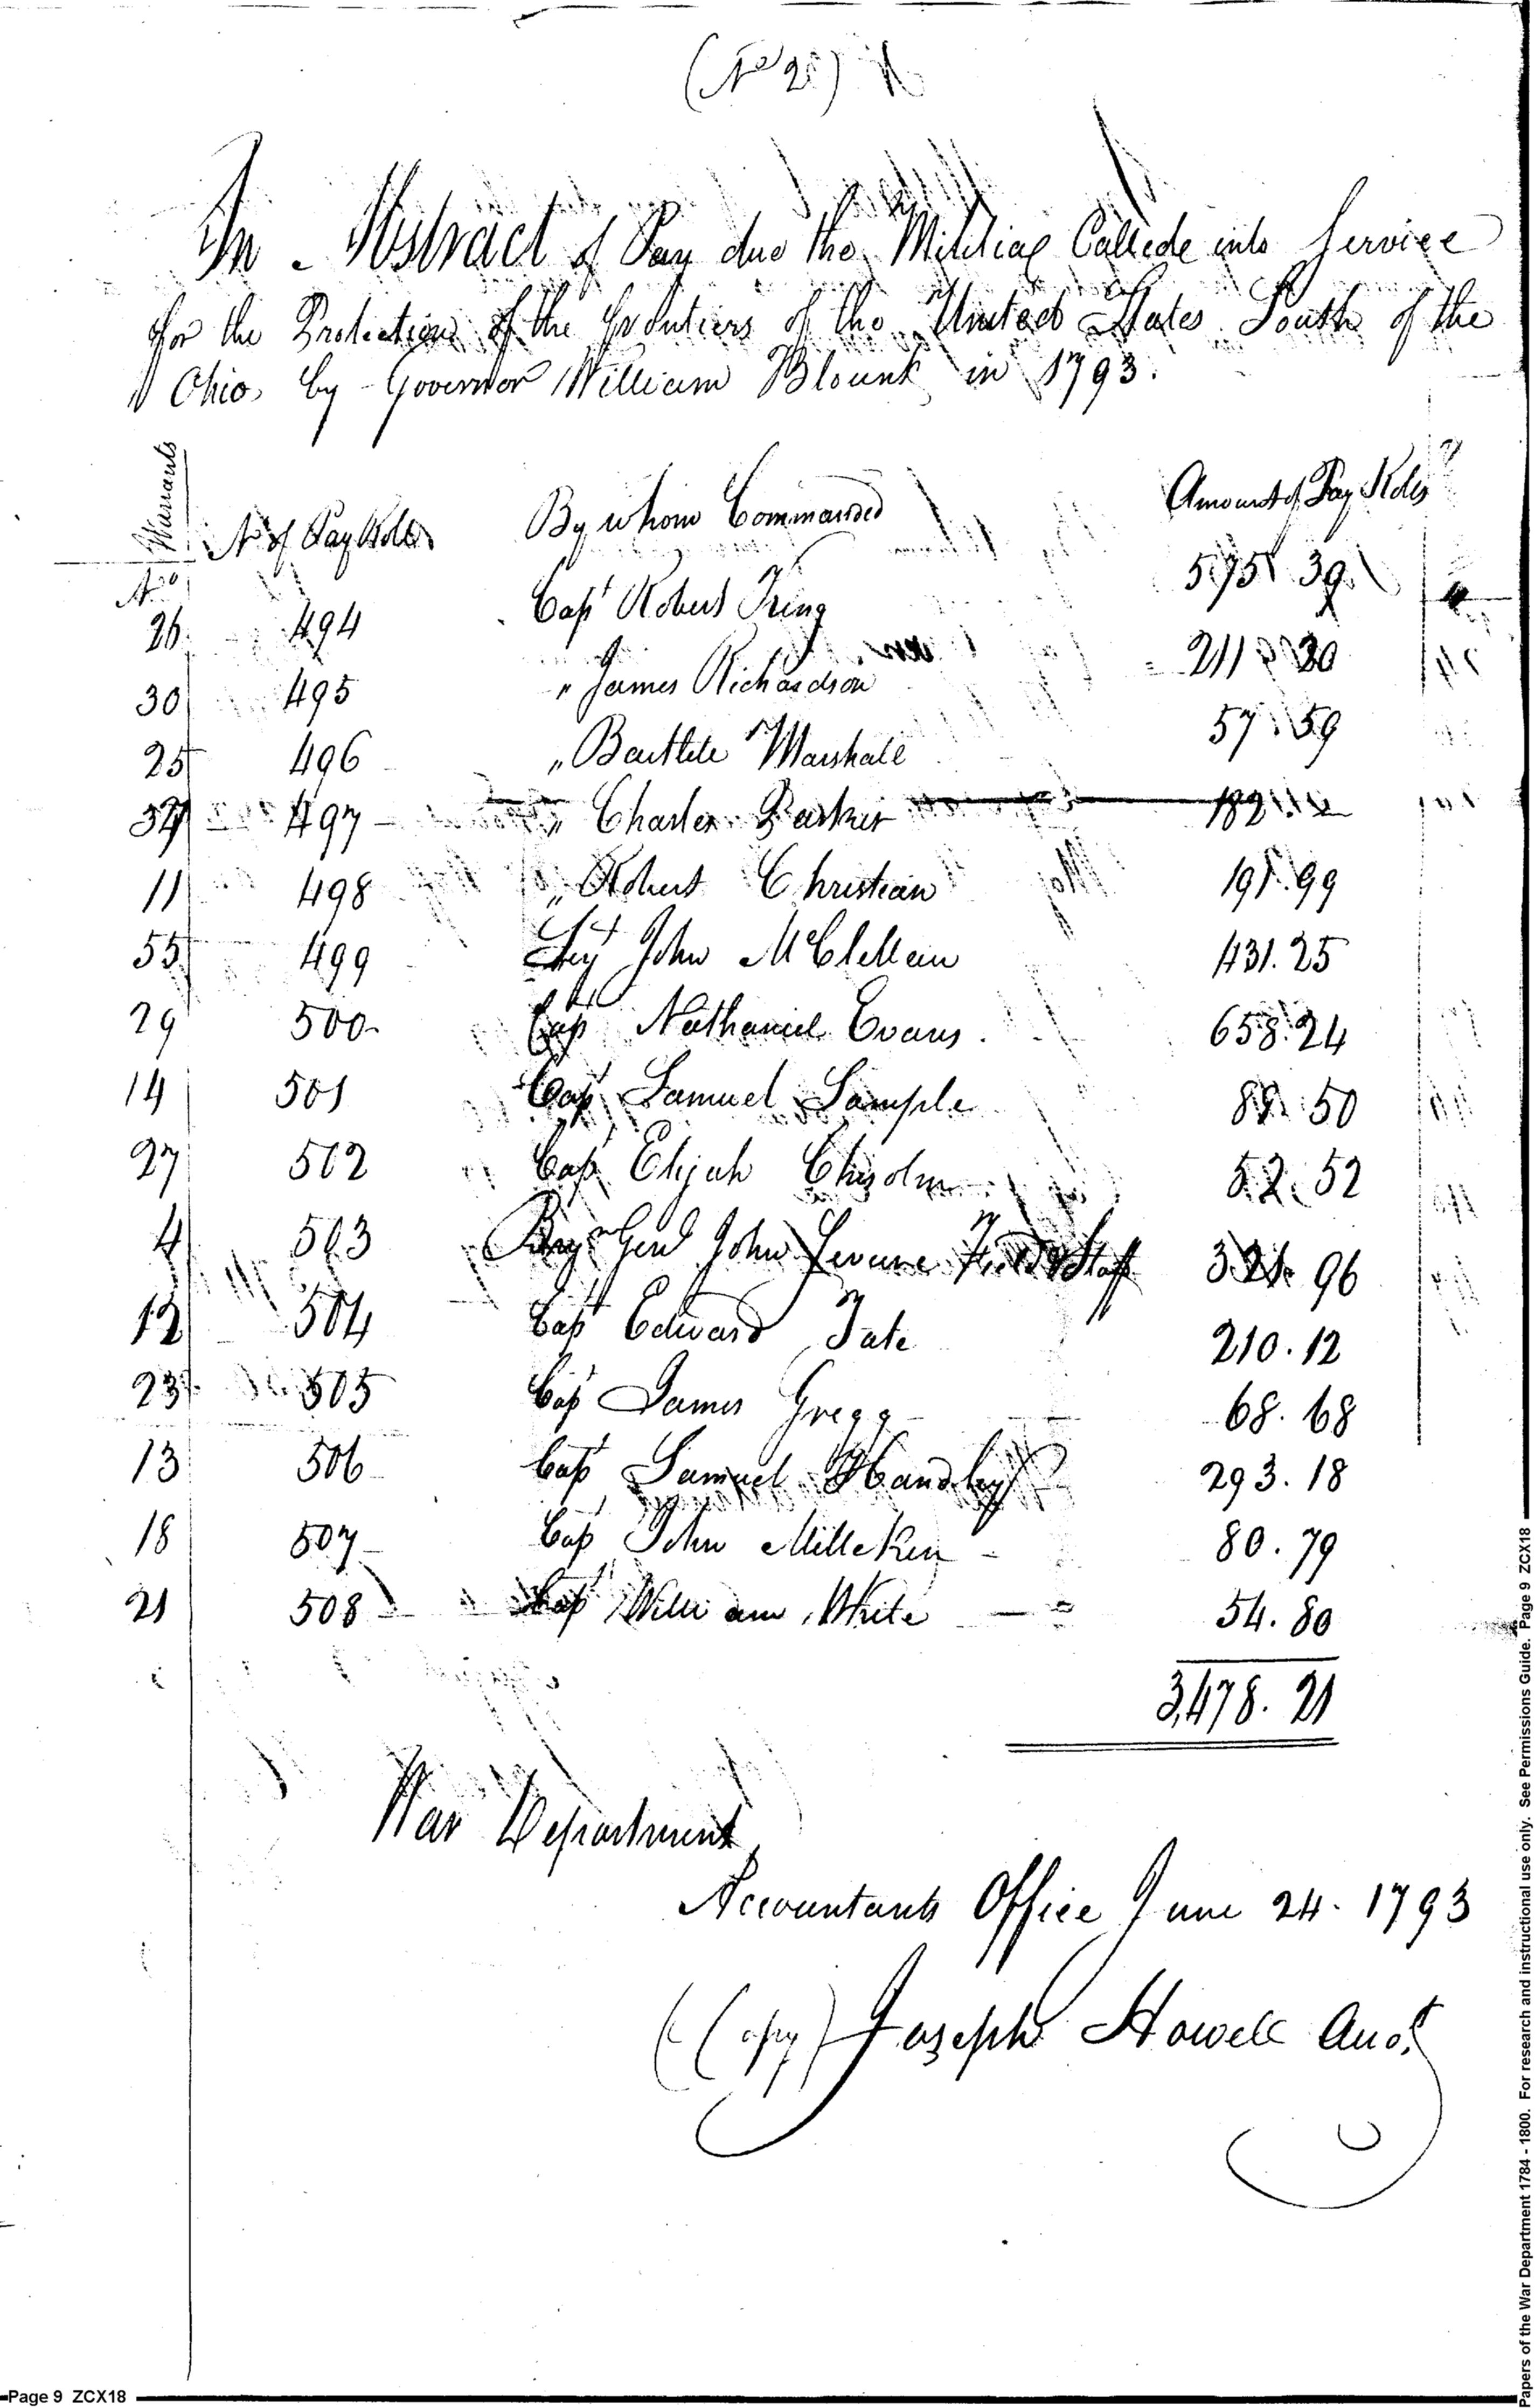 (No 2)
An Abstract of Pay due the Militia Callede into Service
for the Protection of the frontiers of the United States South of the
Ohio, by Governor William Blount in 1793.
Warrants No of Pay Rolls By whom Commanded Amount of Pay Rolls
No
26 494 Capt Robert King 575 39
30 495 " James Richardson 211 30
25 496 " Bartlett Marshall 57 59
497 " Charles Parker 182
11 498 " Robert Christian 191.99
55 499 John McClellan 431.25
29 500 Capt Nathaniel Evans 658.24
14 501 Capt Samuel Sample 50
27 502 Capt Elijah Chisolm 52.52
4 503 Genl John Sevier Field & Staff 96
12 504 Capt Edward Tate 210.12
23 505 Capt James Gregg 68.68
13 506 Capt Samuel Handley 293.18
18 507 Capt John Milleken 80.79
21 508 Capt William White 54.80
3,478.21
War Department
Accountants Office June 24. 1793
(Copy) Joseph Howell
Page 9 ZCX18
Papers of the War Department 1784 - 1800. For research and instructional use only. See Permissions Guide. Page 9 ZCX18